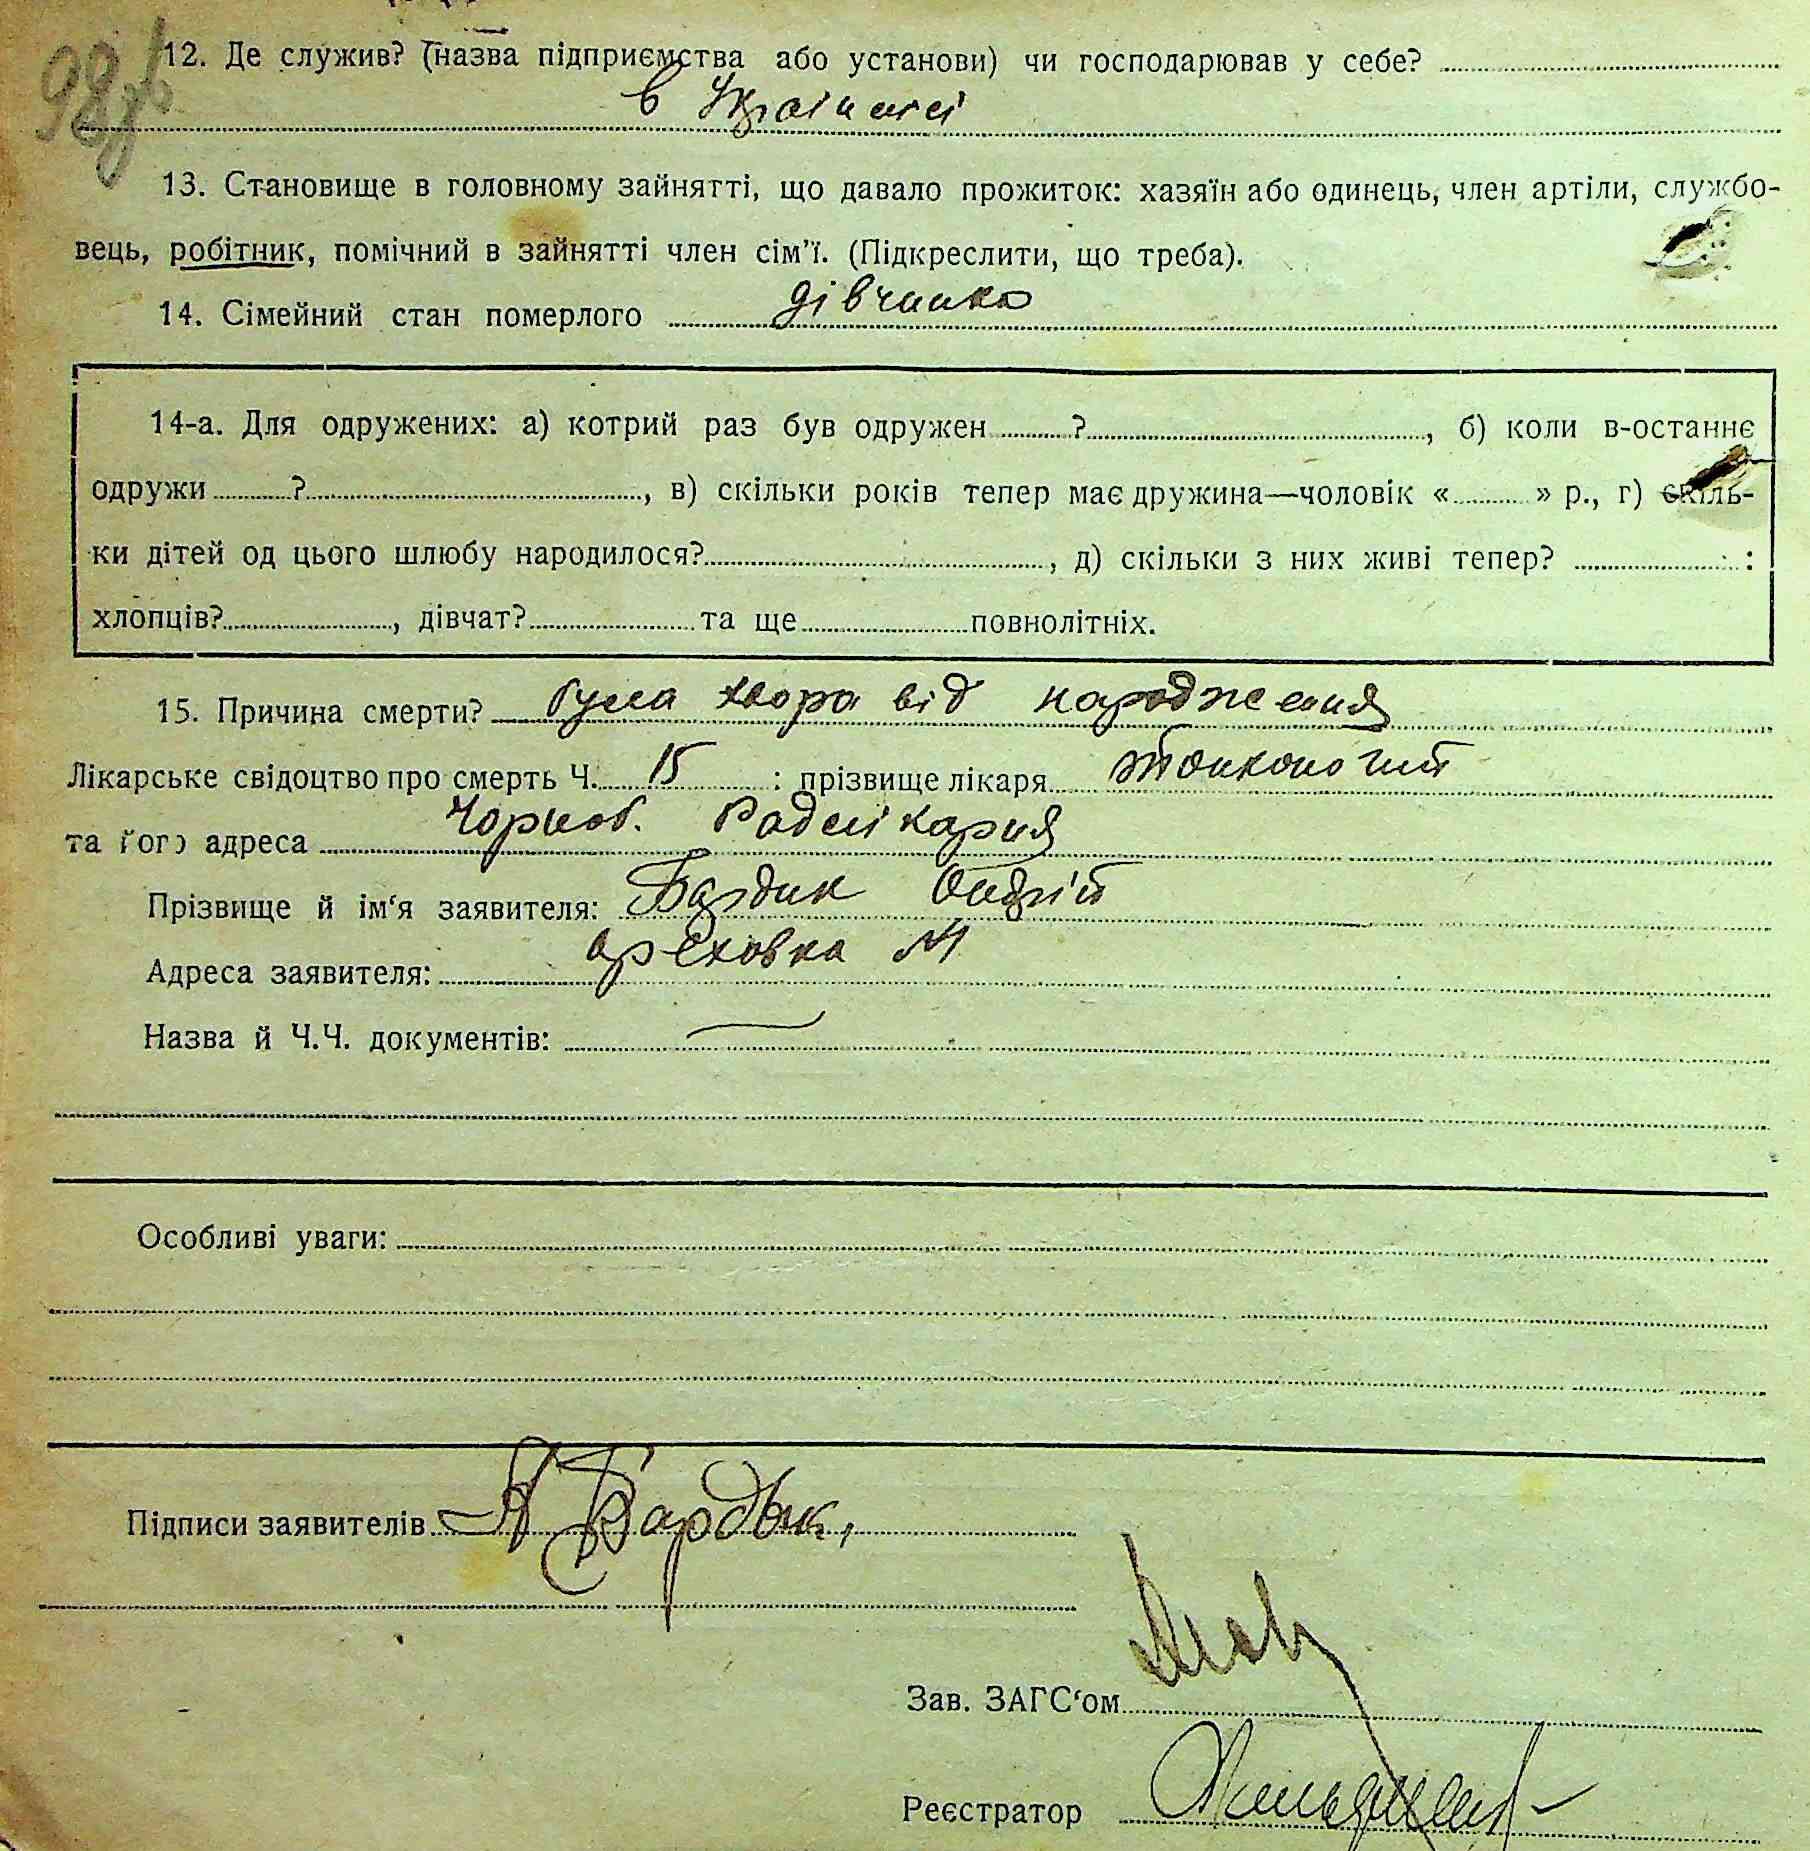 98
12. Де служив? (назва підприємства або установи) чи господарював у себе?
в
13. Становище в головному зайнятті, що давало прожиток: хазяїн або одинець, член артіли, службо-
вець, робітник, помічний в зайнятті член сім'ї. (Підкреслити, що треба).
14. Сімейний стан померлого дівчинка
14-а. Для одружених: а) котрий раз був одружен ? , б) коли в-останнє
одружи ? , в) скільки років тепер має дружина—чоловік « » р., г) скіль-
ки дітей од цього шлюбу народилося? , д) скільки з них живі тепер? :
хлопців? , дівчат? та ще повнолітніх.
15. Причина смерти? була хвора від народження
Лікарське свідоцтво про смерть Ч. 15 : прізвище лікаря Тонконогий
та його адреса Чорноб. Радлікарня
Прізвище й ім'я заявителя: Бардик Андрій
Адреса заявителя: Ореховка №1
Назва й Ч.Ч. документів: —
Особливі уваги:
Підписи заявителів А Бардык,
Зав. ЗАГС'ом
Реєстратор